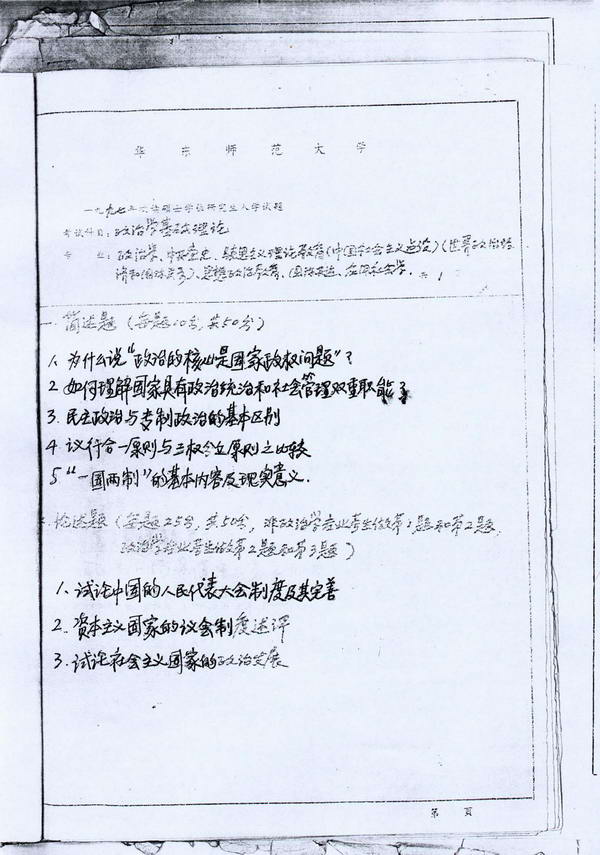 华东师范大学
一九九七年攻读硕士学位研究生入学试题
考试科目：政治学基础理论
专 业：政治学、中共党史、马克思主义理论教育（中国社会主义建设）（世界政治经
济和国际关系）、思想政治教育、
一、简述题（每题10分，共50分）
1、为什么说“政治的核心是国家政权问题”？
2、如何理解国家具有政治统治和社会管理双重职能？
3、民主政治与专制政治的基本区别
4、议行合一原则与三权分立原则之比较
5、“一国两制”的基本内容及现实意义．
论述题（每题25分，共50分，非政治学专业考生做第1题和第2题，
政治学专业考生做第2题和第3题）
1、试论中国的人民代表大会制度及其完善
2、资本主义国家的议会制度述评
3、试论社会主义国家的政治发展
第 頁